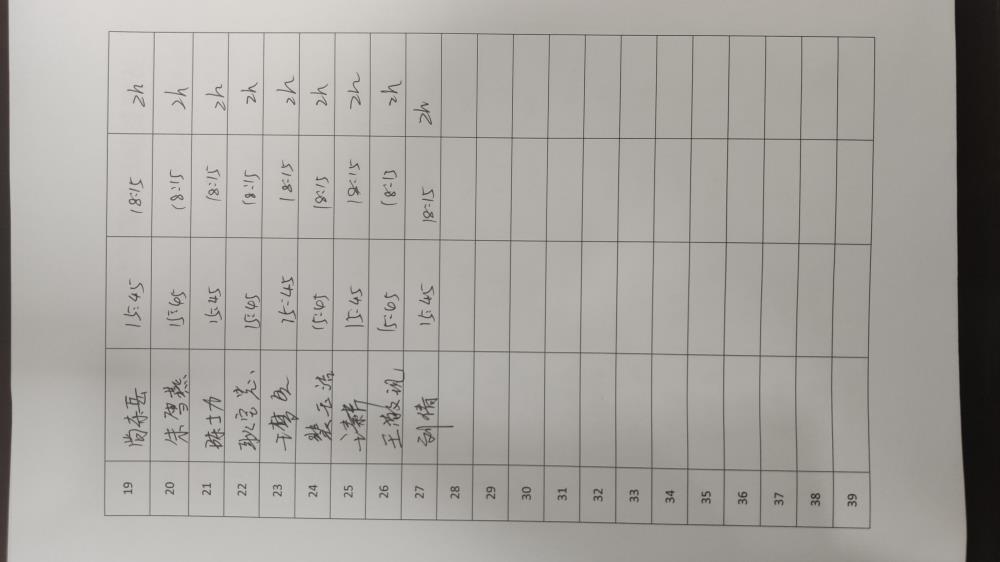 19 尚东岳 15:45 18:15 2h
20 朱雪燕 15:45 18:15 2h
21 陈士力 15:45 18:15 2h
22 15:45 18:15 2h
23 15:45 18:15 2h
24 15:45 18:15 2h
25 15:45 18:15 2h
26 王 15:45 18:15 2h
27 刘倩 15:45 18:15 2h
28
29
30
31
32
33
34
35
36
37
38
39